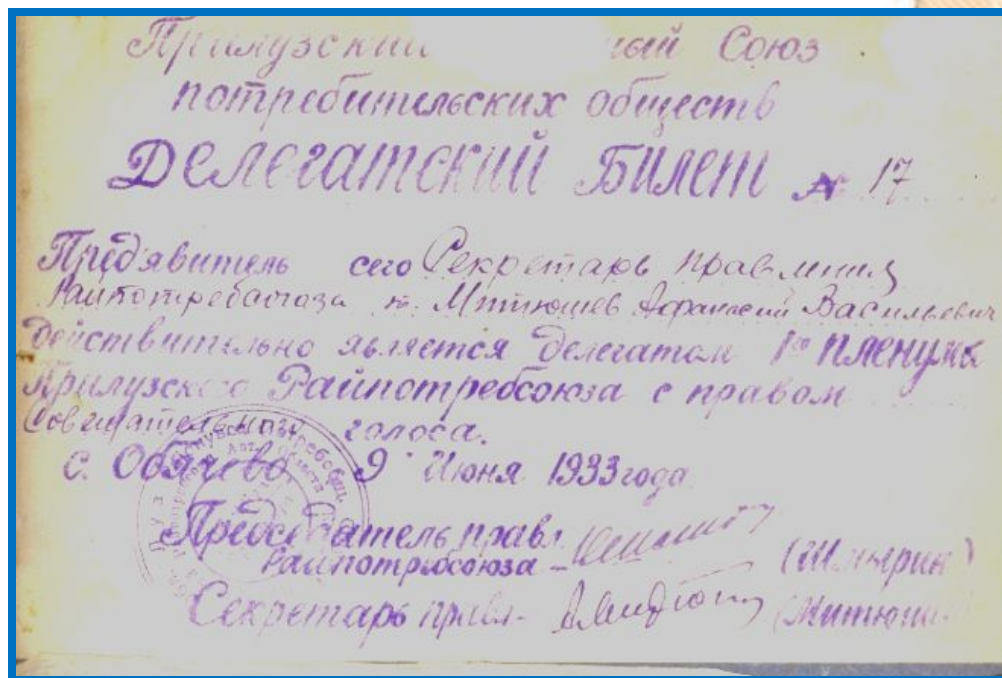 Прилузский ный Союз
потребительских обществ
Делегатский Билет № 17
Предявитель сего Секретарь правления
Райпотребсоюза т. Митюшев Афанасий Васильевич
действительно является делегатом 1го пленума
Прилузского Райпотребсоюза с правом
Совещательного голоса.
с. Обячево 9 Июня 1933 года
Председатель правл.
Райпотребсоюза –
Секретарь правл. (Митюше